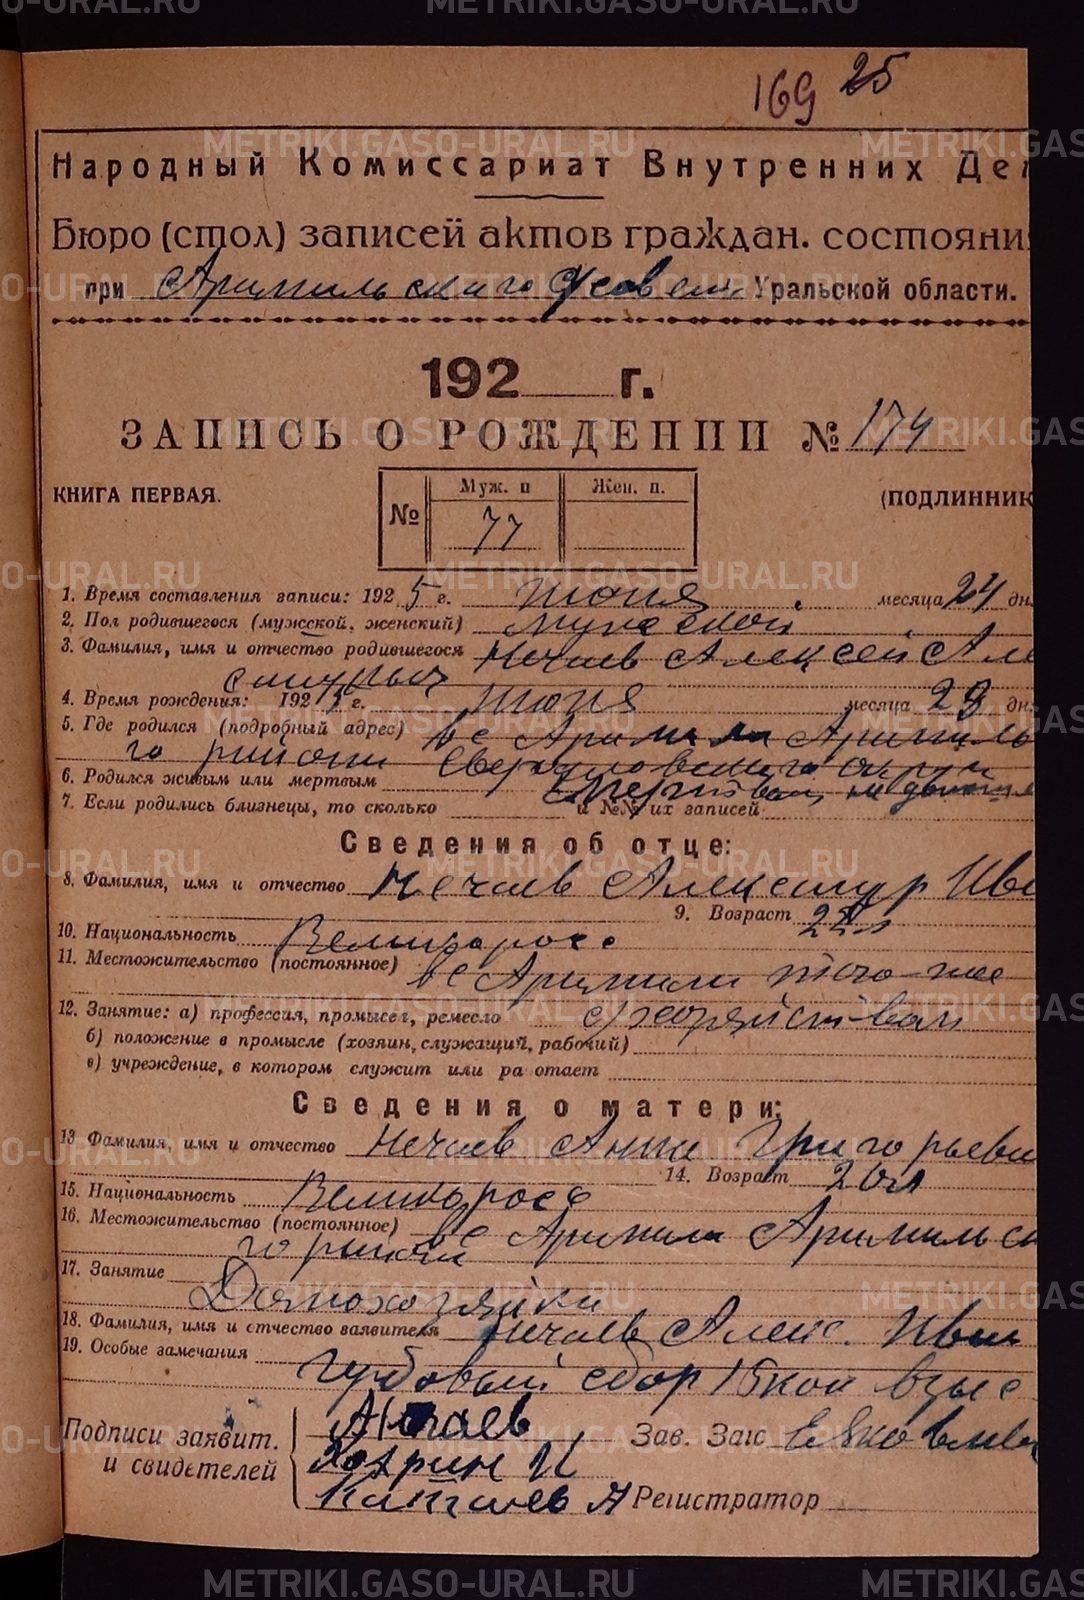 169 25
Народный Комиссариат Внутренних Дел
Бюро (стол) записей актов граждан. состояни
при Арамильского с/совета Уральской области.
192 г.
ЗАПИСЬ О РОЖДЕНИИ № 174
КНИГА ПЕРВАЯ. (ПОДЛИННИК
№ Муж. п Жен. п.
77
1. Время составления записи: 1925 г. июня месяца 24 дн.
2. Пол родившегося (мужской, женский) мужской
3. Фамилия, имя и отчество родившегося Нечаев Алексей Але
4. Время рождения: 1925 г. июня месяца 23 дн.
5. Где родился (подробный адрес) в с Арамили Арамиль
го района Свердловского округа
6. Родился живым или мертвым
7. Если родились близнецы, то сколько и №№ их записей
Сведения об отце:
8. Фамилия, имя и отчество Нечаев Александр Ива
9. Возраст 22 л
10. Национальность Великоросс
11. Местожительство (постоянное) в с Арамили того-же
12. Занятие: а) профессия, промысел, ремесло с/хозяйством
б) положение в промысле (хозяин, служащий, рабочий)
в) учреждение, в котором служит или ра отает
Сведения о матери:
13 Фамилия, имя и отчество Нечаев Анна Григорьевн
14. Возраст 20 л
15. Национальность Великоросс
16. Местожительство (постоянное) в с Арамили Арамильск
го района
17. Занятие
Домохозяйка
18. Фамилия, имя и отчество заявителя Нечаев Алекс. Иван
19. Особые замечания
гербовый сбор 15 коп взыс
Подписи заявит.
и свидетелей
А Нечаев
Зав. Загс Е Яковлев
Регистратор
METRIKI.GASO-URAL.RU